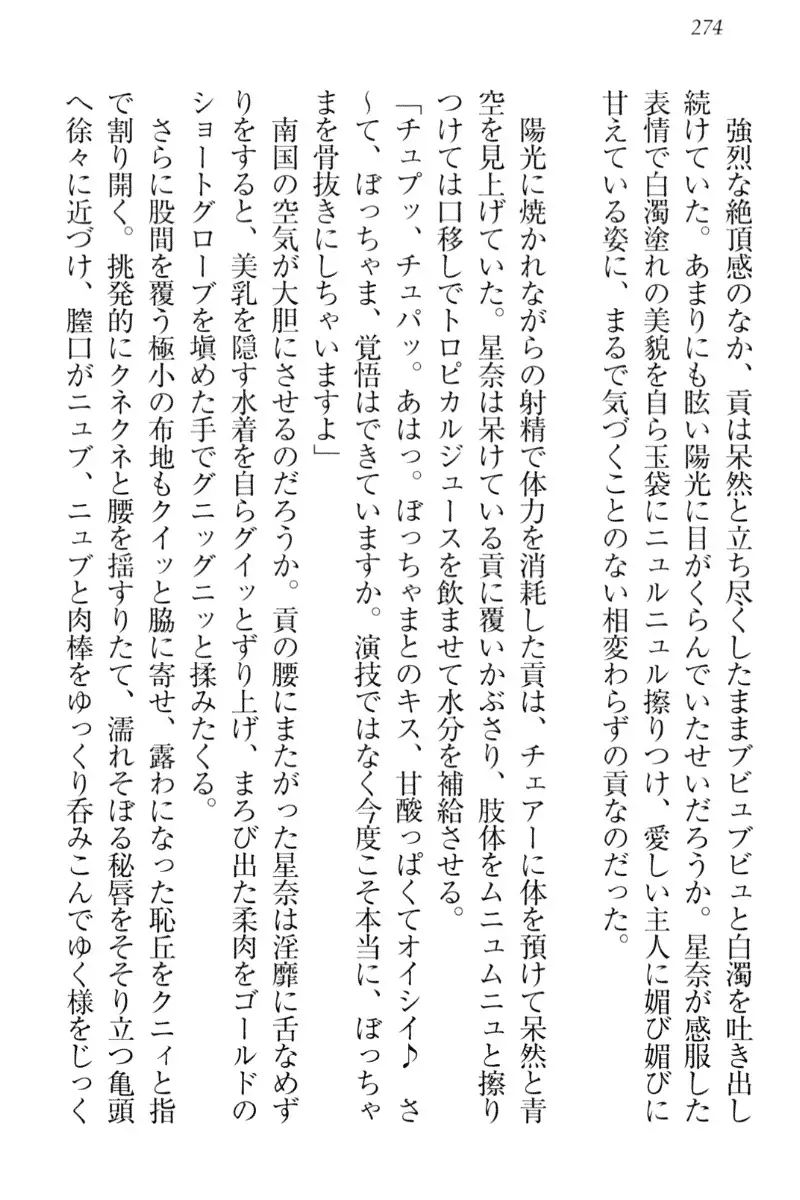 274
強烈な絶頂感のなか、貢は呆然と立ち尽くしたままブビュブビュと白濁を吐き出し
続けていた。あまりにも眩い陽光に目がくらんでいたせいだろうか。星奈が感服した
表情で白濁塗れの美貌を自ら玉袋にニュルニュル擦りつけ、愛しい主人に媚び媚びに
甘えている姿に、まるで気づくことのない相変わらずの貢なのだった。
陽光に焼かれながらの射精で体力を消耗した貢は、チェアーに体を預けて呆然と青
空を見上げていた。星奈は呆けている貢に覆いかぶさり、肢体をムニュムニュと擦り
つけては口移しでトロピカルジュースを飲ませて水分を補給させる。
「チュプッ、チュパッ。あはっ。ぼっちゃまとのキス、甘酸っぱくてオイシイ♪　さ
〜て、ぼっちゃま、覚悟はできていますか。演技ではなく今度こそ本当に、ぼっちゃ
まを骨抜きにしちゃいますよ」
南国の空気が大胆にさせるのだろうか。貢の腰にまたがった星奈は淫靡に舌なめず
りをすると、美乳を隠す水着を自らグイッとずり上げ、まろび出た柔肉をゴールドの
ショートグローブを填めた手でグニッグニッと揉みたくる。
さらに股間を覆う極小の布地もクイッと脇に寄せ、露わになった恥丘をクニィと指
で割り開く。挑発的にクネクネと腰を揺すりたて、濡れそぼる秘唇をそそり立つ亀頭
へ徐々に近づけ、膣口がニュブ、ニュブと肉棒をゆっくり呑みこんでゆく様をじっく